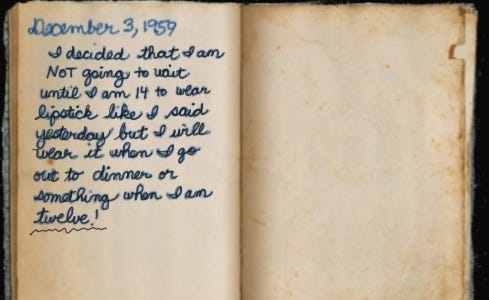 December 3, 1959
I decided that I am
NOT going to wait
until I am 14 to wear
lipstick like I said
yesterday but I will
wear it when I go
out to dinner or
something when I am
twelve!